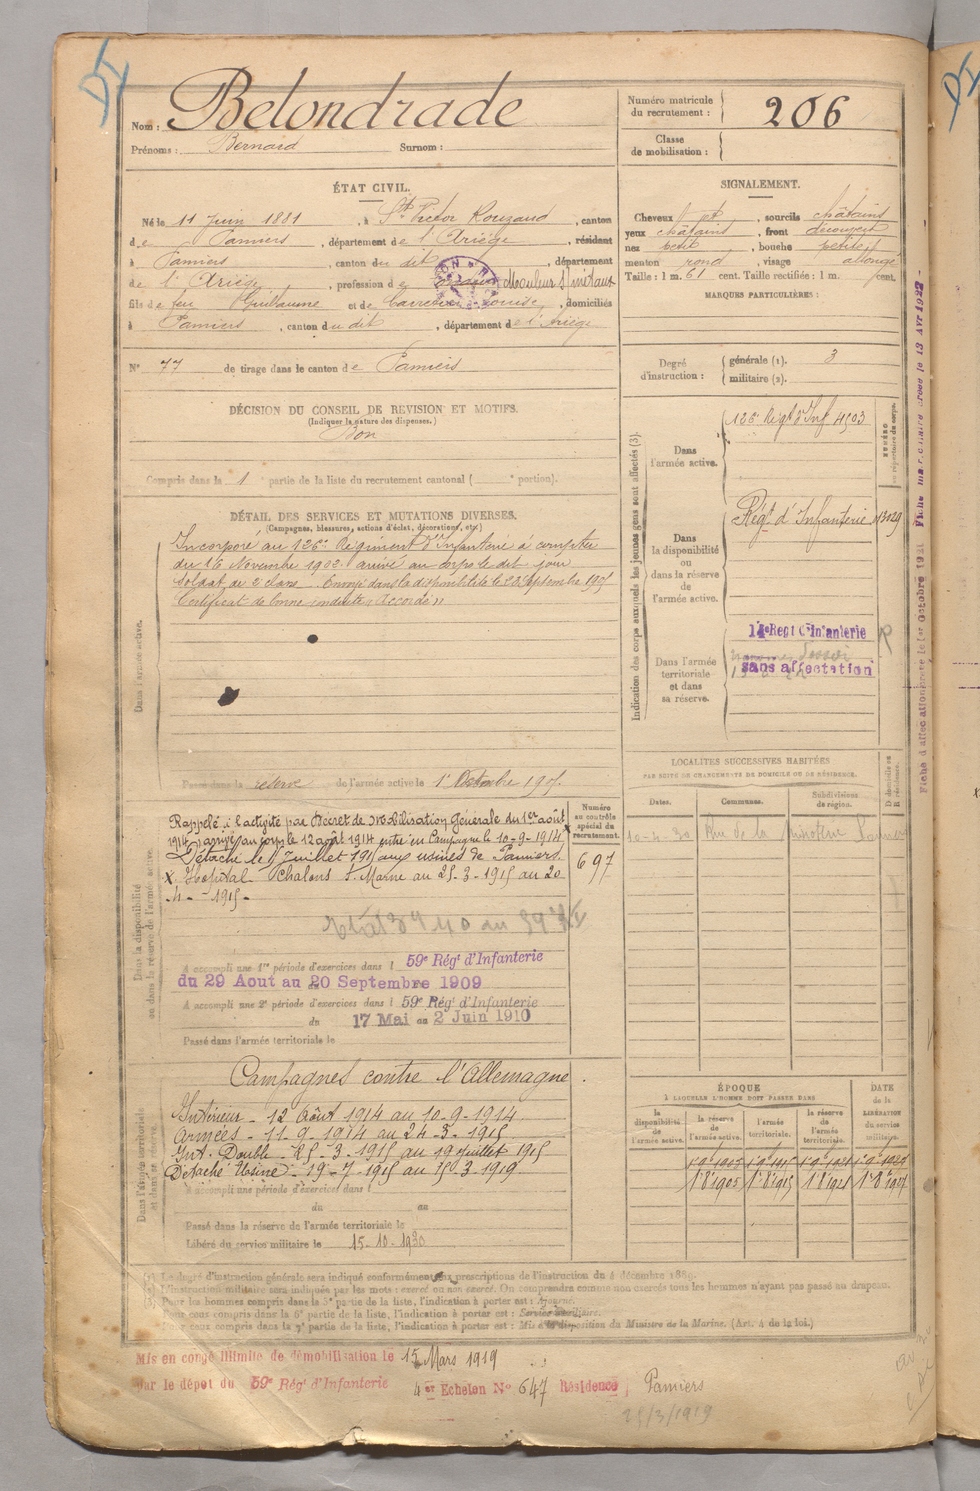 Nom : Belondrade
Prénoms : Bernard Surnom :
Numéro matricule du recrutement : 206
Classe de mobilisation :
ÉTAT CIVIL.
Né le 11 Juin 1881, à St Victor Rouzaud, canton
de Pamiers, département de l'Ariège, résidant
à Pamiers, canton du dit, département
de l'Ariège, profession de Mouleur s/ métaux
fils de feu Guillaume et de Louise, domiciliés
à Pamiers, canton du dit, département de l'Ariège
N° 77 de tirage dans le canton de Pamiers
DÉCISION DU CONSEIL DE REVISION ET MOTIFS.
(Indiquer la nature des dispenses.)
Bon
Compris dans la 1 partie de la liste du recrutement cantonal ( portion).
DÉTAIL DES SERVICES ET MUTATIONS DIVERSES.
(Campagnes, blessures, actions d'éclat, décorations, etc.)
Dans l'armée active.
Incorporé au 126e Régiment d'Infanterie à compter
du 16 Novembre 1902 arrivé au corps le dit jour
Soldat de 2e classe. Envoyé dans la disponibilité le 23 Septembre 1905
Certificat de bonne conduite "Accordé"
Passé dans la réserve de l'armée active le 1er Octobre 1905
Dans la disponibilité ou dans la réserve de l'armée active.
Rappelé à l'activité par Décret de Mobilisation Générale du 1er août
1914, arrivé au corps le 12 août 1914 entré en Campagne le 10-9-1914
Détaché le Juillet 1915 aux usines de Pamiers.
x Hopital Chalons s. Marne au 25-3-1915 au 20
-4-1915-
Numéro au contrôle spécial du recrutement.
697
A accompli une 1re période d'exercices dans l 59e Régt d'Infanterie
du 29 Aout au 20 Septembre 1909
A accompli une 2e période d'exercices dans l 59e Régt d'Infanterie
du 17 Mai au 2 Juin 1910
Passé dans l'armée territoriale le
Dans l'armée territoriale et dans sa réserve.
Campagnes contre l'Allemagne.
Intérieur - 12 Août 1914 au 10-9-1914
Armées - 11-9-1914 au 24-3-1915
Int. Double - 25-3-1915 au 19 Juillet 1915
Détaché Usine - 19-7-1915 au 15-3-1919
A accompli une période d'exercices dans l
du au
Passé dans la réserve de l'armée territoriale le
Libéré du service militaire le 15-10-1930
SIGNALEMENT.
Cheveux, sourcils châtains
yeux châtains, front découvert
nez petit, bouche petite
menton rond, visage allongé
Taille : 1 m. 61 cent. Taille rectifiée : 1 m. cent.
MARQUES PARTICULIÈRES :
Degré d'instruction : générale (1). 3
militaire (2).
Indication des corps auxquels les jeunes gens sont affectés (3).
NUMÉRO au répertoire du corps.
Dans l'armée active.
126e Régt d'Inf 4503
Dans la disponibilité ou dans la réserve de l'armée active.
Régt d'Infanterie 13029
Dans l'armée territoriale et dans sa réserve.
14e Regt d'Infanterie
sans affectation
R
LOCALITÉS SUCCESSIVES HABITÉES
PAR SUITE DE CHANGEMENTS DE DOMICILE OU DE RÉSIDENCE.
Dates. Communes. Subdivisions de région. D domicile ou R résidence.
10-4-30 Rue de la Minoterie Pamiers
ÉPOQUE
À LAQUELLE L'HOMME DOIT PASSER DANS
DATE de la LIBÉRATION du service militaire.
la disponibilité de l'armée active. la réserve de l'armée active. l'armée territoriale. la réserve de l'armée territoriale.
Fiche d'affectation prete le 1er Octobre 1921
(1) Le degré d'instruction générale sera indiqué conformément aux prescriptions de l'instruction du 4 décembre 1889.
(2) L'instruction militaire sera indiquée par les mots : exercé ou non exercé. On comprendra comme non exercés tous les hommes n'ayant pas passé au drapeau.
(3) Pour les hommes compris dans la 5e partie de la liste, l'indication à porter est : Ajourné.
Pour ceux compris dans la 6e partie de la liste, l'indication à porter est : Service auxiliaire.
Pour ceux compris dans la 7e partie de la liste, l'indication à porter est : Mis à la disposition du Ministre de la Marine. (Art. 4 de la loi.)
Mis en congé illimité de démobilisation le 15 Mars 1919
par le dépôt du 59e Régt d'Infanterie 4er Echelon N° 647 Résidence Pamiers
25/3/1919